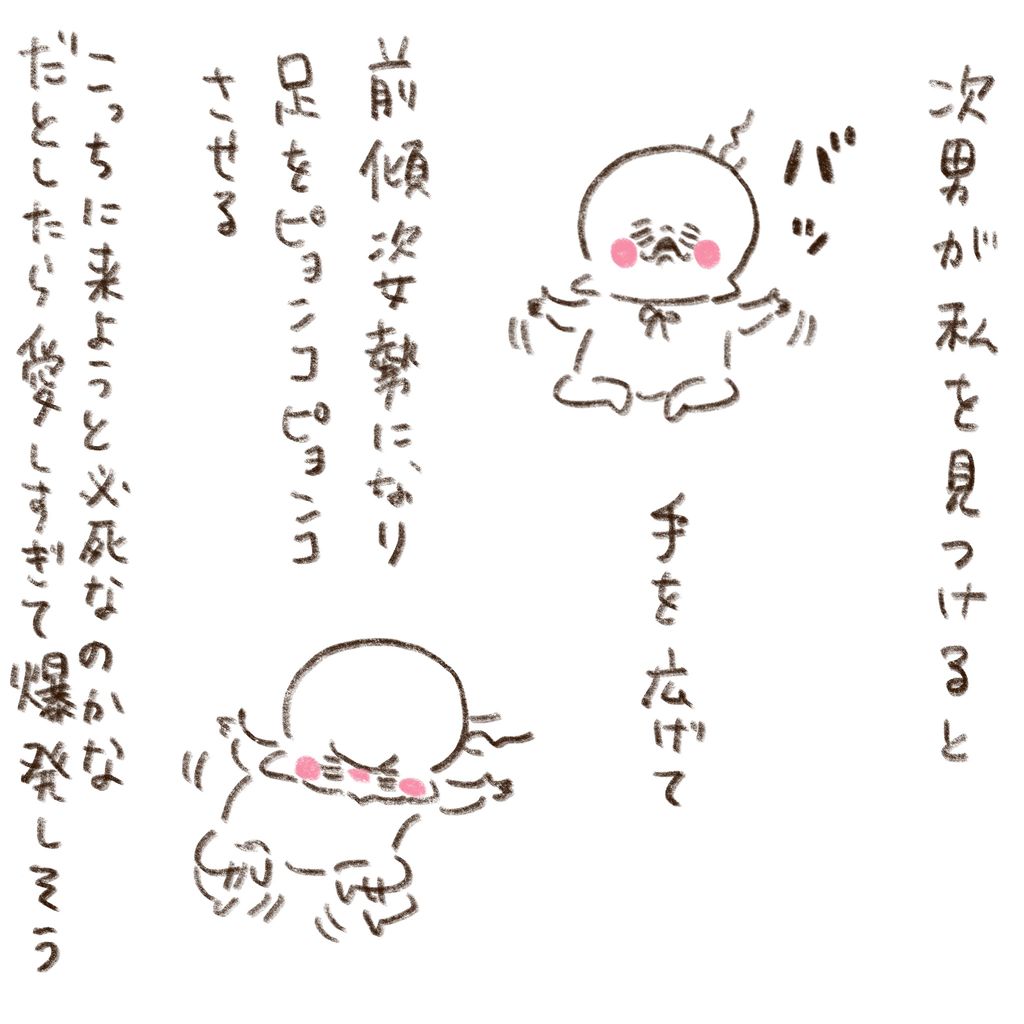 次男が私を見つけると
バッ
手を広げて
前傾次女勢になり
足をピョンコピョンコ
させる
こっちに来ようと必死なのかな
だとしたら愛しすぎて爆発しそう